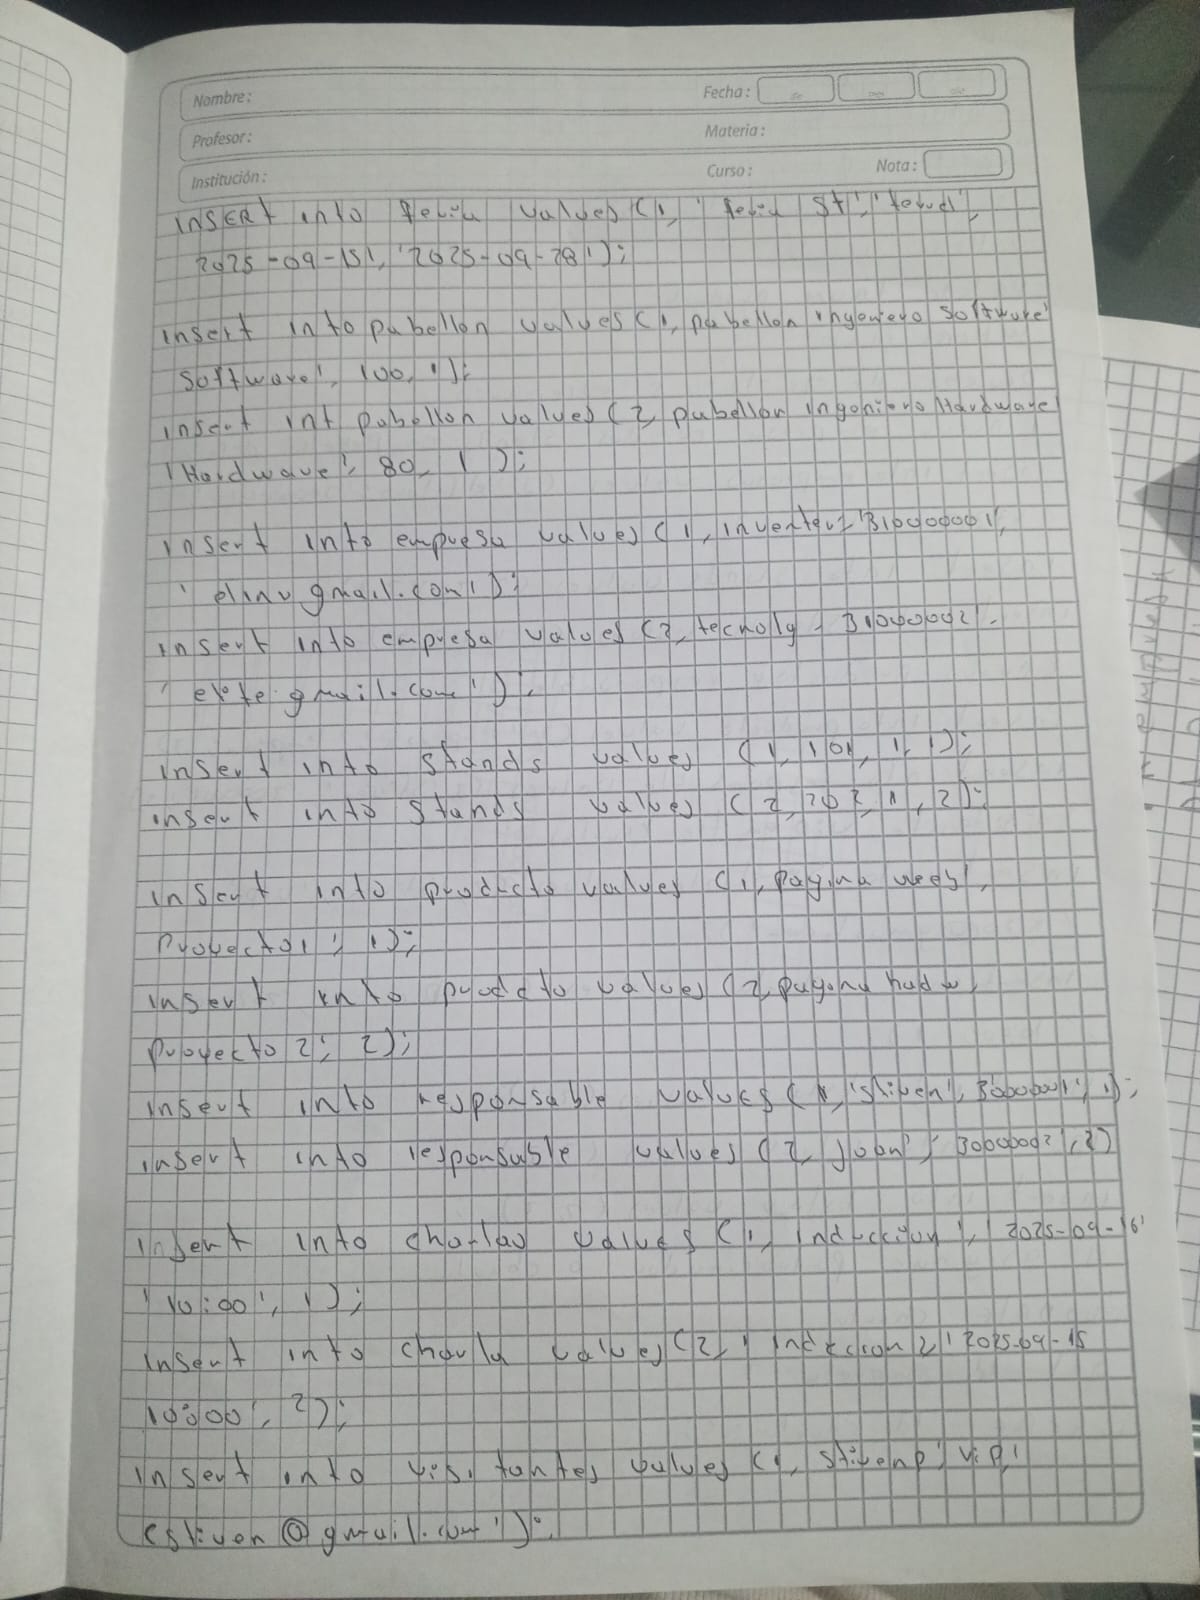 Nombre: Fecha:
Profesor: Materia:
Institución: Curso: Nota:
INSERt into feria values (1, 'feria St',
2025-09-15', '2025-09-28');
insert into pabellon values (1, pabellon ingeniero software'
software', 100, 1);
insert int pabellon values (2 pabellon ingeniero Hardware
'Hardware', 80, 1);
insert into empresa values (1, 31000001',
' gmail.com');
insert into empresa values (2, tecnoly - 31000002'.
' exte gmail.com');
insert into stands values (1, 101, 1, 1);
insert into stands values (2, 202, 1, 2);
insert into producto values (1, pagina web',
Proyecto1', 1);
insert into producto values (2, pagina
Proyecto 2', 2);
insert into responsable values (1, 'stiven', 3000001', 1);
insert into responsable values (2, Joan', 3000002', 2)
Insert into charlas values (1, induccion', ' 2025-09-16'
' 10:00', 1);
insert into charla values (2, ' induccion 2, ' 2025-09-15
10:00', 2);
insert into visitantes values (1, stivenp', vip,'
estiven@gmail.com');